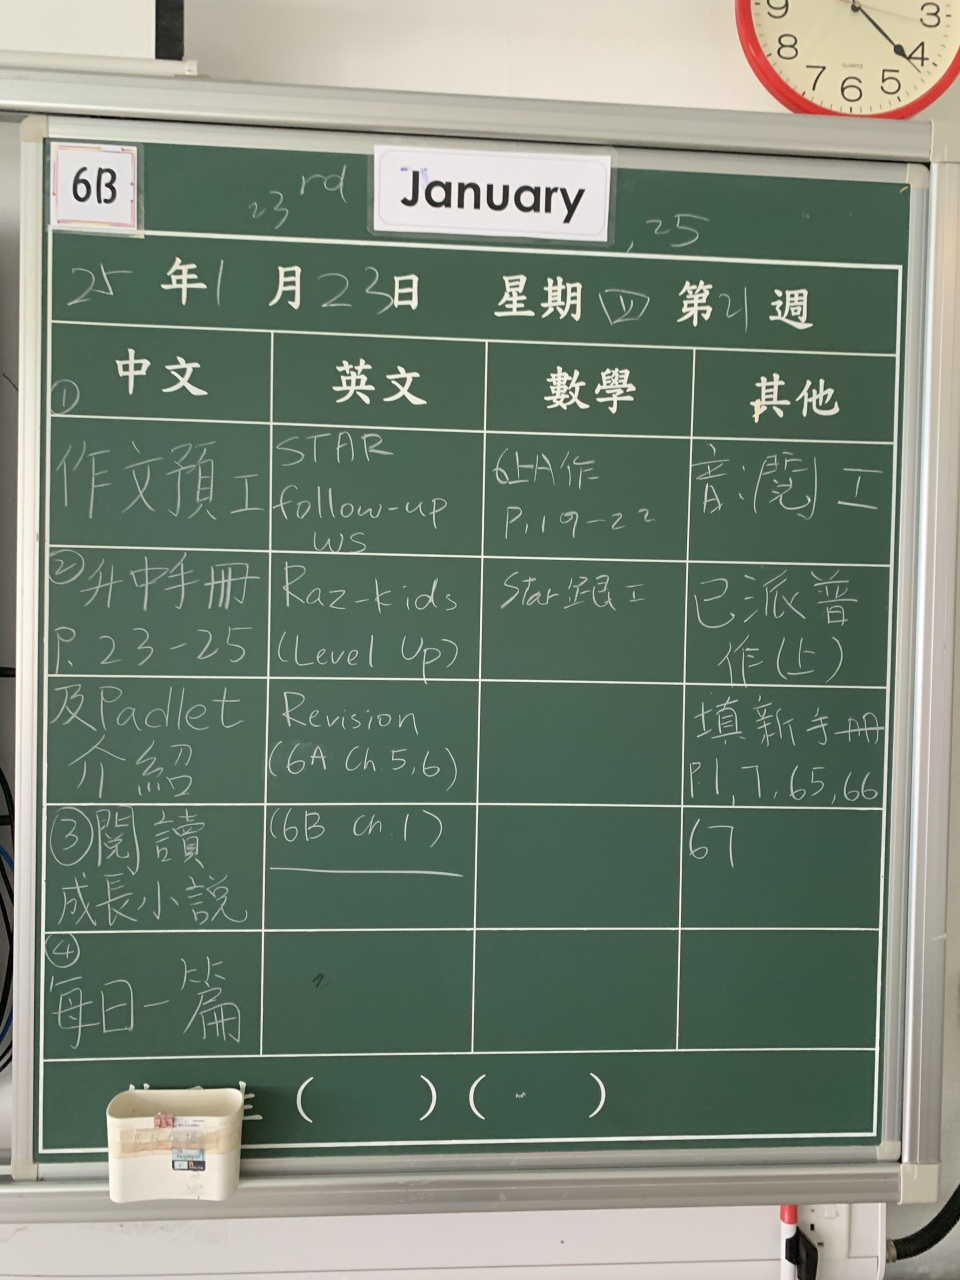 9
3
8
4
7
6
5
QUARTZ
6B
23rd
January
, 25
25年1月23日 星期四 第21週
中文
英文
數學
其他
①
作文預工
STAR
follow-up
WS
6上A作
P.19-22
音:閱工
②升中手冊
P.23-25
Raz-kids
(Level Up)
Star跟工
已派普
作(上)
及Padlet
介紹
Revision
(6A Ch.5,6)
填新手冊
P.1,7,65,66
③閱讀
成長小說
(6B Ch.1)
67
④
每日一篇
( ) ( )